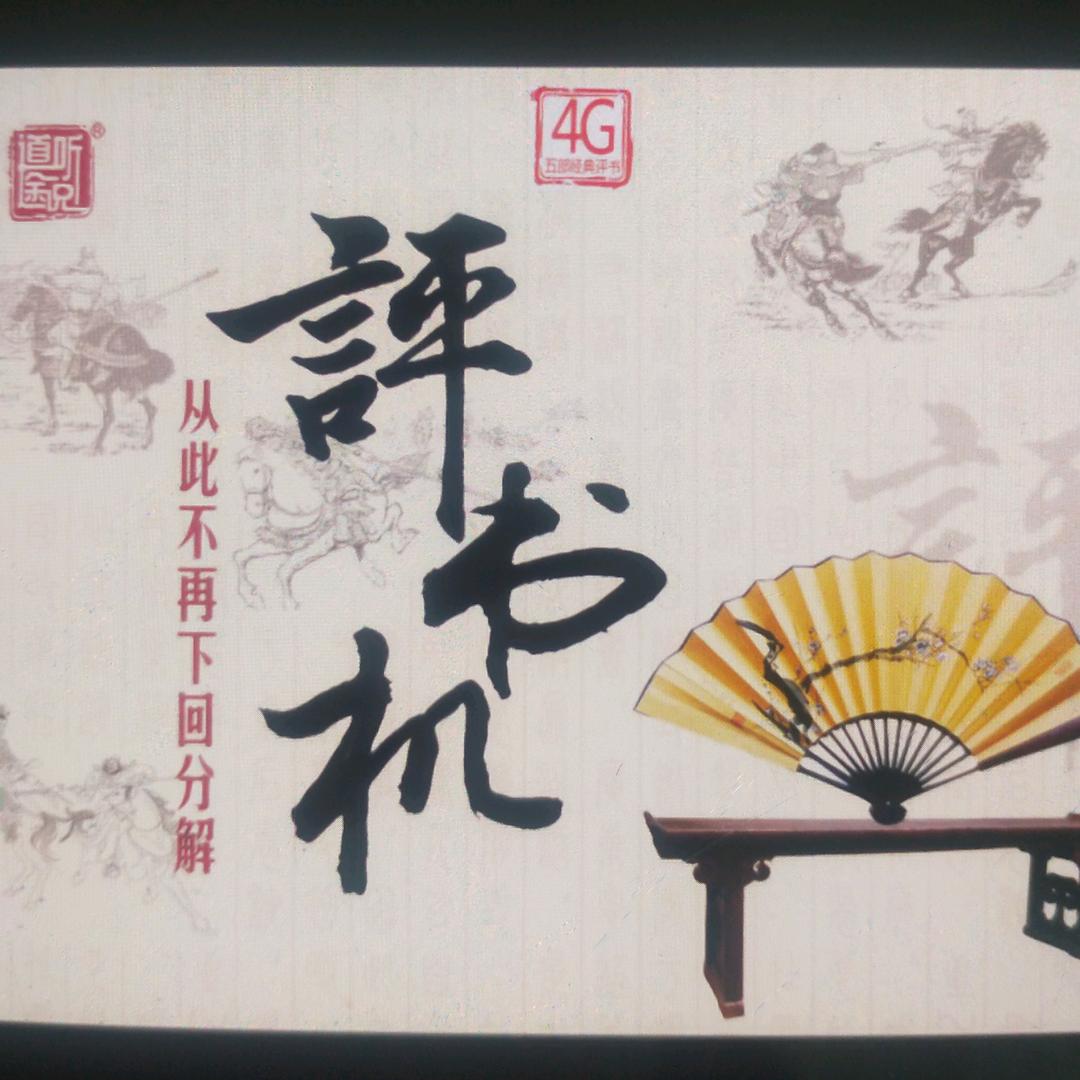 道听途说®
4G
五部经典评书
評书机
从此不再下回分解